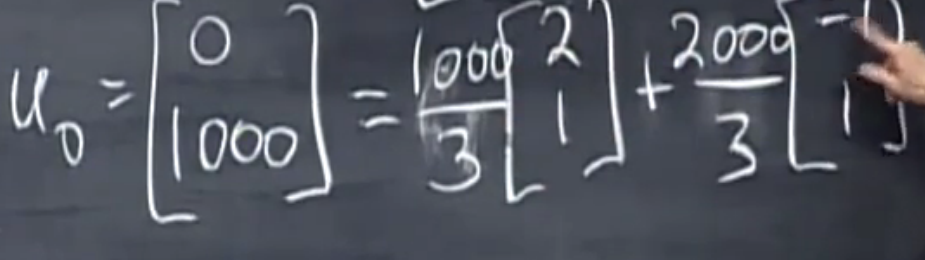 u₀ = [0 1000] = 1000/3 [2 1] + 2000/3 [-1 1]